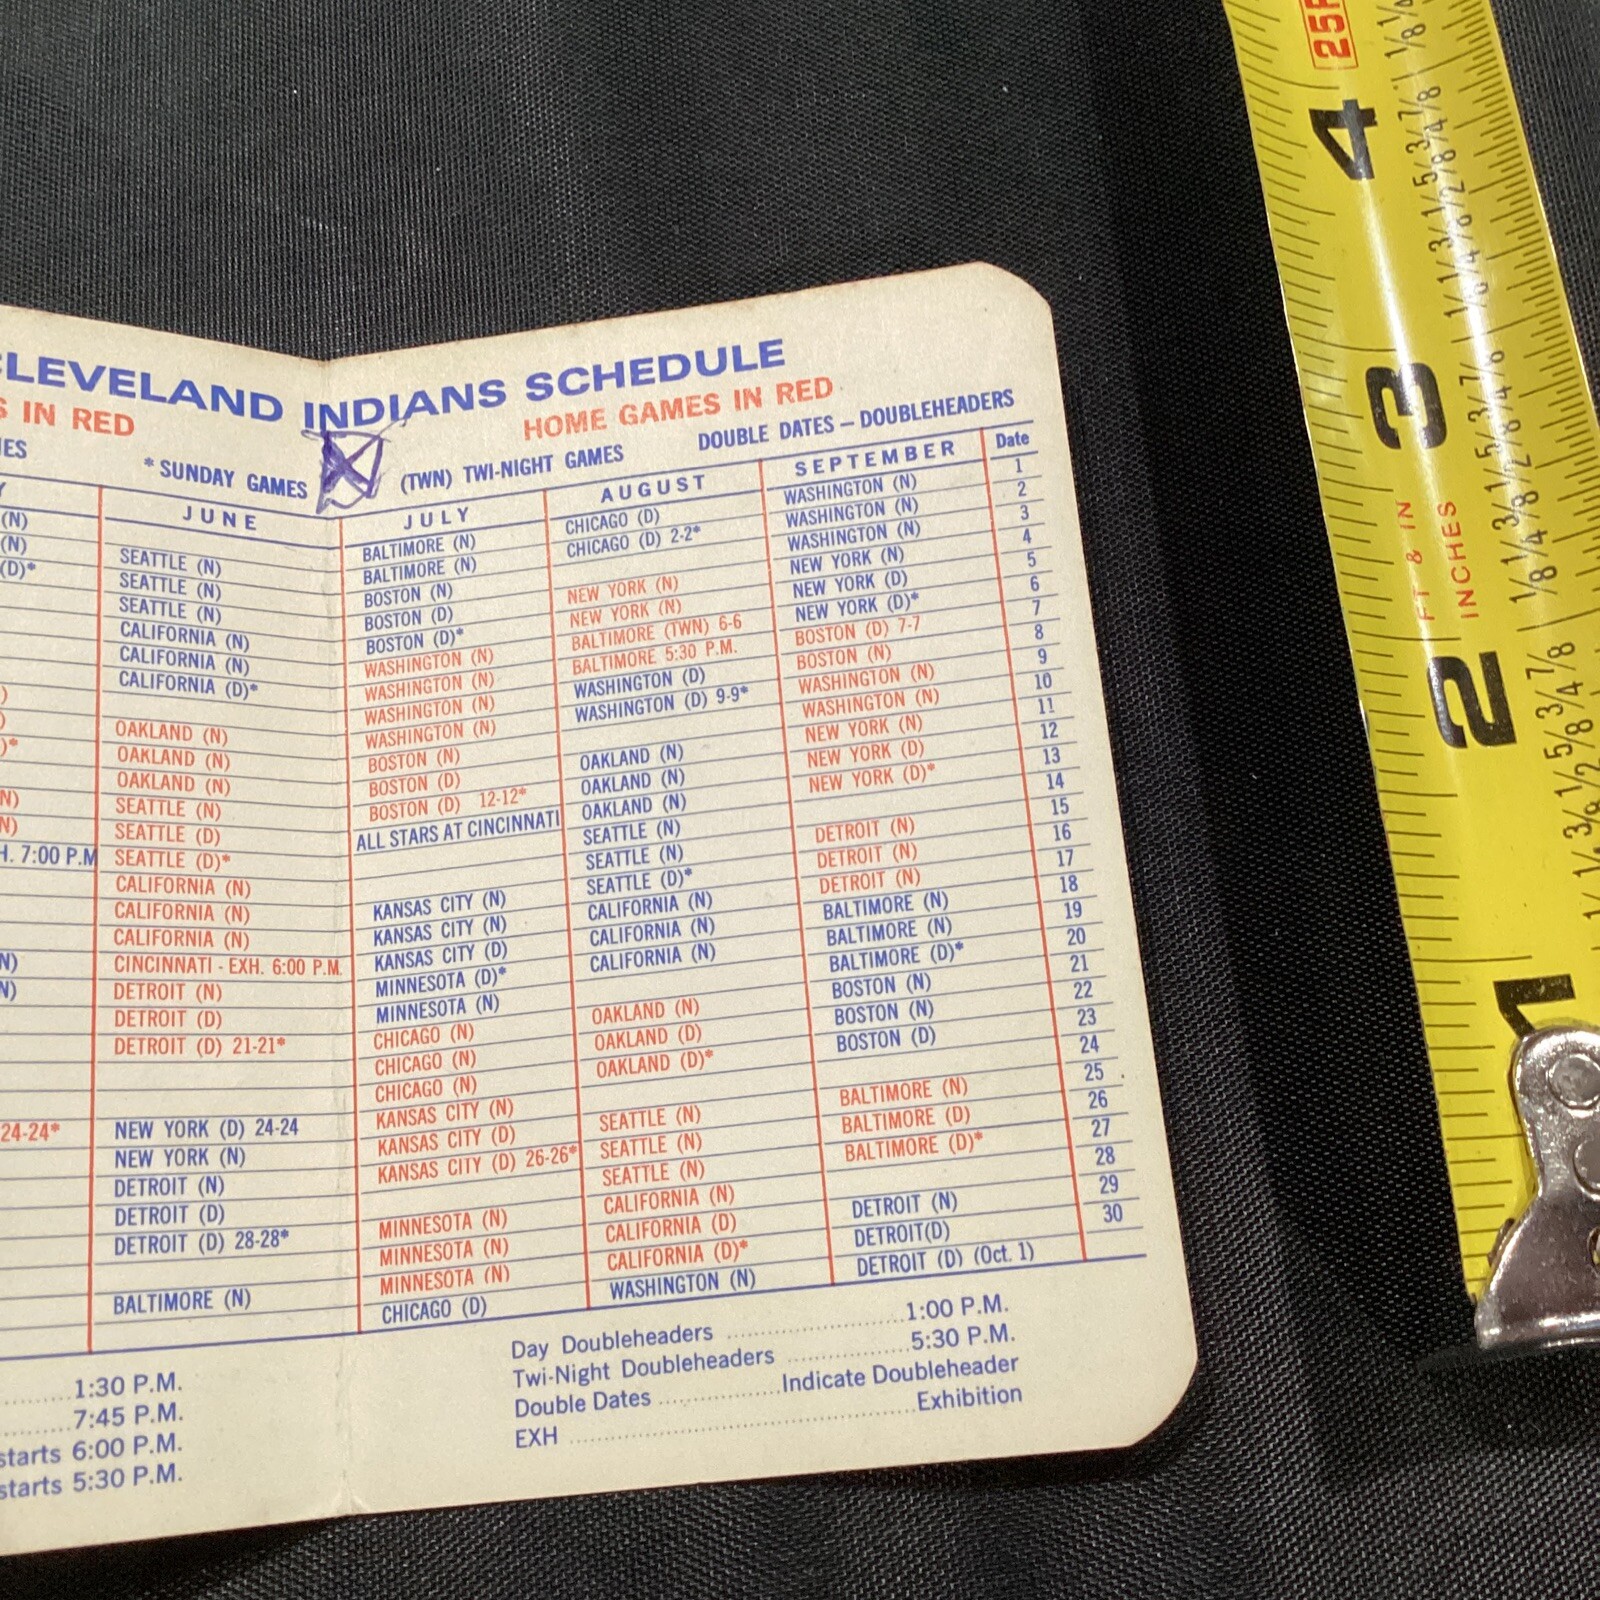 CLEVELAND INDIANS SCHEDULE
S IN RED
HOME GAMES IN RED
*SUNDAY GAMES
(TWN) TWI-NIGHT GAMES
DOUBLE DATES – DOUBLEHEADERS
(N)
(N)
(D)*
)
)
)*
N)
N)
H. 7:00 P.M
N)
N)
24-24*
JUNE
SEATTLE (N)
SEATTLE (N)
SEATTLE (N)
CALIFORNIA (N)
CALIFORNIA (N)
CALIFORNIA (D)*
OAKLAND (N)
OAKLAND (N)
OAKLAND (N)
SEATTLE (N)
SEATTLE (D)
SEATTLE (D)*
CALIFORNIA (N)
CALIFORNIA (N)
CALIFORNIA (N)
CINCINNATI - EXH. 6:00 P.M.
DETROIT (N)
DETROIT (D)
DETROIT (D) 21-21*
NEW YORK (D) 24-24
NEW YORK (N)
DETROIT (N)
DETROIT (D)
DETROIT (D) 28-28*
BALTIMORE (N)
JULY
BALTIMORE (N)
BALTIMORE (N)
BOSTON (N)
BOSTON (D)
BOSTON (D)*
WASHINGTON (N)
WASHINGTON (N)
WASHINGTON (N)
WASHINGTON (N)
BOSTON (N)
BOSTON (D)
BOSTON (D) 12-12*
ALL STARS AT CINCINNATI
KANSAS CITY (N)
KANSAS CITY (N)
KANSAS CITY (D)
MINNESOTA (D)*
MINNESOTA (N)
CHICAGO (N)
CHICAGO (N)
CHICAGO (N)
KANSAS CITY (N)
KANSAS CITY (D)
KANSAS CITY (D) 26-26*
MINNESOTA (N)
MINNESOTA (N)
MINNESOTA (N)
CHICAGO (D)
AUGUST
CHICAGO (D)
CHICAGO (D) 2-2*
NEW YORK (N)
NEW YORK (N)
BALTIMORE (TWN) 6-6
BALTIMORE 5:30 P.M.
WASHINGTON (D)
WASHINGTON (D) 9-9*
OAKLAND (N)
OAKLAND (N)
OAKLAND (N)
SEATTLE (N)
SEATTLE (N)
SEATTLE (D)*
CALIFORNIA (N)
CALIFORNIA (N)
CALIFORNIA (N)
OAKLAND (N)
OAKLAND (D)
OAKLAND (D)*
SEATTLE (N)
SEATTLE (N)
SEATTLE (N)
CALIFORNIA (N)
CALIFORNIA (D)
CALIFORNIA (D)*
WASHINGTON (N)
SEPTEMBER
WASHINGTON (N)
WASHINGTON (N)
WASHINGTON (N)
NEW YORK (N)
NEW YORK (D)
NEW YORK (D)*
BOSTON (D) 7-7
BOSTON (N)
WASHINGTON (N)
WASHINGTON (N)
NEW YORK (N)
NEW YORK (D)
NEW YORK (D)*
DETROIT (N)
DETROIT (N)
DETROIT (N)
BALTIMORE (N)
BALTIMORE (N)
BALTIMORE (D)*
BOSTON (N)
BOSTON (N)
BOSTON (D)
BALTIMORE (N)
BALTIMORE (D)
BALTIMORE (D)*
DETROIT (N)
DETROIT(D)
DETROIT (D) (Oct. 1)
Date
1
2
3
4
5
6
7
8
9
10
11
12
13
14
15
16
17
18
19
20
21
22
23
24
25
26
27
28
29
30
1:30 P.M.
7:45 P.M.
starts 6:00 P.M.
starts 5:30 P.M.
Day Doubleheaders 1:00 P.M.
Twi-Night Doubleheaders 5:30 P.M.
Double Dates Indicate Doubleheader
EXH Exhibition
25F
4
3
FT & IN
INCHES
2
1